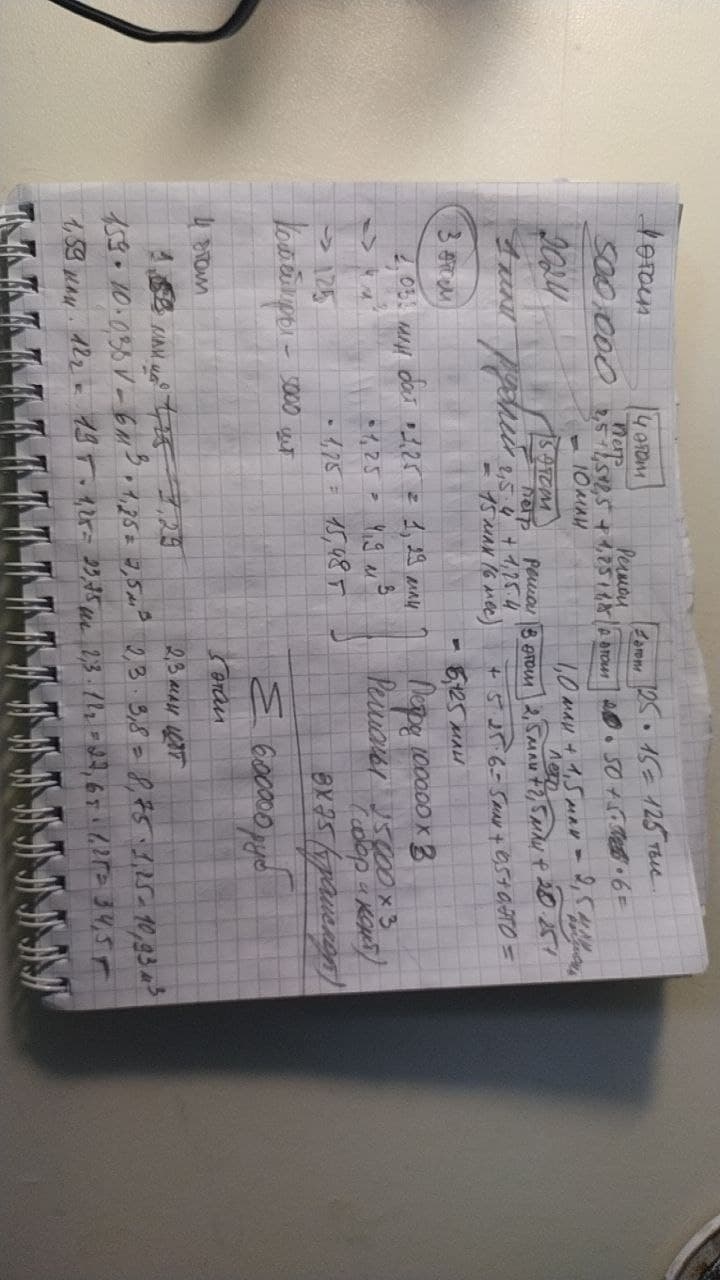 1 этап
500.000
2024
1 млн рублей
4 этап
Петр Регион
2,5+2,5+2,5 + 1,25+1,25
= 10 млн
5 этап
Петр Регион
2,5·4 + 1,25·4
= 15 млн (6 мес)
1 этап 25 · 15 = 125 тыс.
2 этап 20 · 50 + 5 · 6 =
1,0 млн + 1,5 млн = 2,5 млн
Петр
3 этап 2,5млн+2,5млн + 20·25+
+ 5·25·6 = 5млн + 0,5+0,750 =
= 6,125 млн
3 этап
1,033 млн бат ·1,25 = 1,29 млн
=> 4 м³ ·1,25 = 4,9 м³
=> 125 ·1,25 = 15,48 т
Контейнеры – 5000 шт
Петро 100000 x 3
Регионы 25000 x 3
(сбор и конт)
3x75 (транспорт)
Σ 600000 руб
4 этап
млн шт 1,25 1,29
1,59 · 10 · 0,38 V = 6 м³ · 1,25 = 7,5 м³
1,59 млн · 12г = 19 т · 1,25 = 23,75
5 этап
2,3 млн шт
2,3 · 3,8 = 8,75 · 1,25 = 10,93 м³
2,3 · 12г = 27,6т · 1,25 = 34,5 т